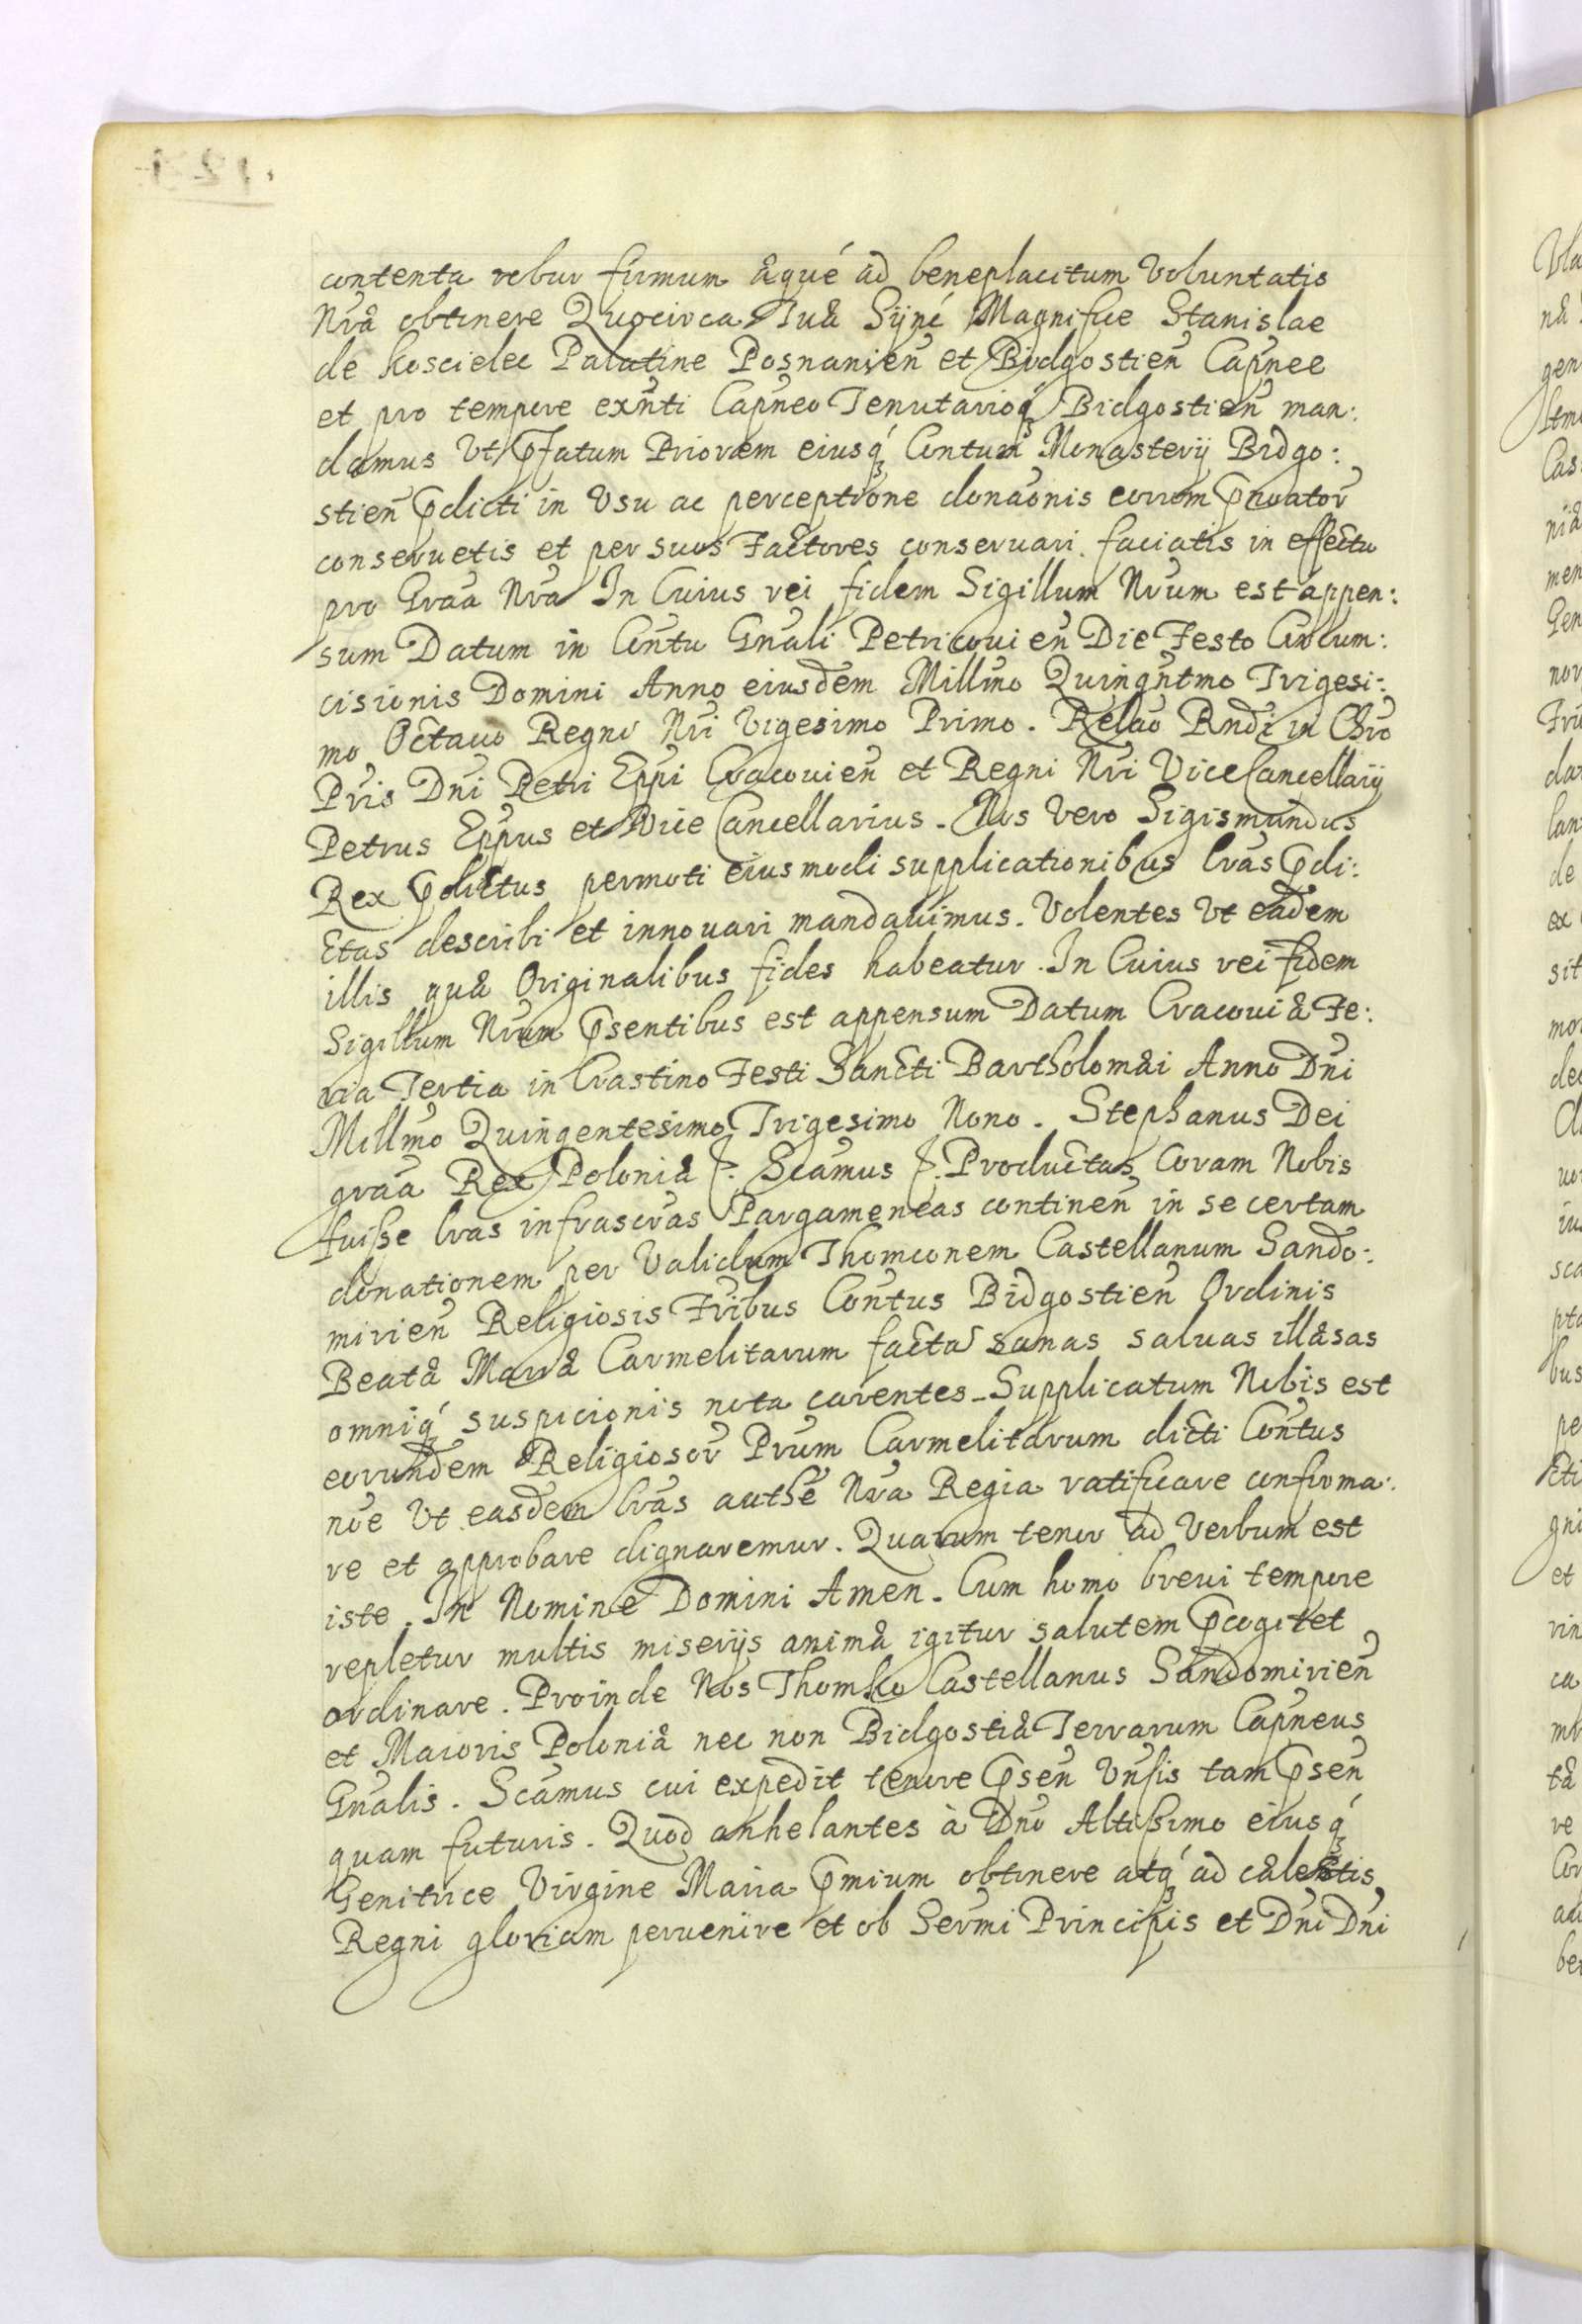 contenta robur firmum æque ad beneplacitum Voluntatis
Nræ obtinere Quocirca Tuæ Syné Magnifice Stanislae
de Koscielec Palatine Posnanien̄ et Bidgostien̄ Capnee
et pro tempore exn̄ti Capneo Tenutarioq́ Bidgostien̄ man:
damus Vt p̄fatum Priorem eiusq́ Contum Monasterij Bidgo:
stien̄ p̄dicti in Vsu ac perceptione donāonis eorum p̄noator̄
conseruetis et per suos Factores conseruari faciatis in effectu
pro Gr̄aa Nr̄a In Cuius rei fidem Sigillum Nr̄um est appen:
sum Datum in Cōntu Gn̄ali Petricouien̄ Die Festo Circum:
cisionis Domini Anno eiusdem Millm̄o Quingn̄tmo Trigesi:
mo Octauo Regni Nr̄i Vigesimo Primo. Relāo Rn̄di in Chr̄o
Pr̄is Dn̄i Petri Ep̄pi Cracouien̄ et Regni Nr̄i Vice Cancellarij
Petrus Ep̄pus et Vice Cancellarius. Nos Vero Sigismundus
Rex p̄dictus permoti eiusmodi supplicationibus lr̄as p̄di:
ctas describi et innouari mandauimus. Volentes Vt eadem
illis quæ Originalibus fides habeatur. In Cuius rei fidem
Sigillum Nr̄um p̄sentibus est appensum Datum Cracouiæ Fe:
ria Tertia in Crastino Festi Sancti Bartholomæi Anno Dn̄i
Millm̄o Quingentesimo Trigesimo Nono. Stephanus Dei
gr̄aa Rex Poloniæ &. Scāmus &. Productas Coram Nobis
fuiſse lr̄as infrascr̄as Pargameneas continen̄ in se certam
donationem per Validum Thomconem Castellanum Sando:
mirien̄ Religiosis Fr̄ibus Cōntus Bidgostien̄ Ordinis
Beatæ Mariæ Carmelitarum factā sanas saluas illæsas
omniq́ suspicionis nota carentes. Supplicatum Nobis est
eorundem Religiosor̄ Pr̄um Carmelitarum dicti Cōntus
nōe Vt easdem lr̄as authē Nr̄a Regia ratificare confirma:
re et approbare dignaremur. Quarum tenor ad Verbum est
iste. In Nomine Domini Amen. Cum homo breui tempore
repletur multis miserijs animæ igitur salutem p̄cogitet
ordinare. Proinde Nos Thomko Castellanus Sandomirien̄
et Maioris Poloniæ nec non Bidgostiæ Terrarum Capneus
Gn̄alis. Scāmus cui expedit tenore p̄sen̄ Vn̄sis tam p̄sen̄
quam futuris. Quod anhelantes à Dn̄o Altiſsimo eiusq́
Genitrice Virgine Maria p̄mium obtinere atq́ ad cælestis
Regni gloriam peruenire et ob Serm̄i Principis et Dn̄i Dn̄i